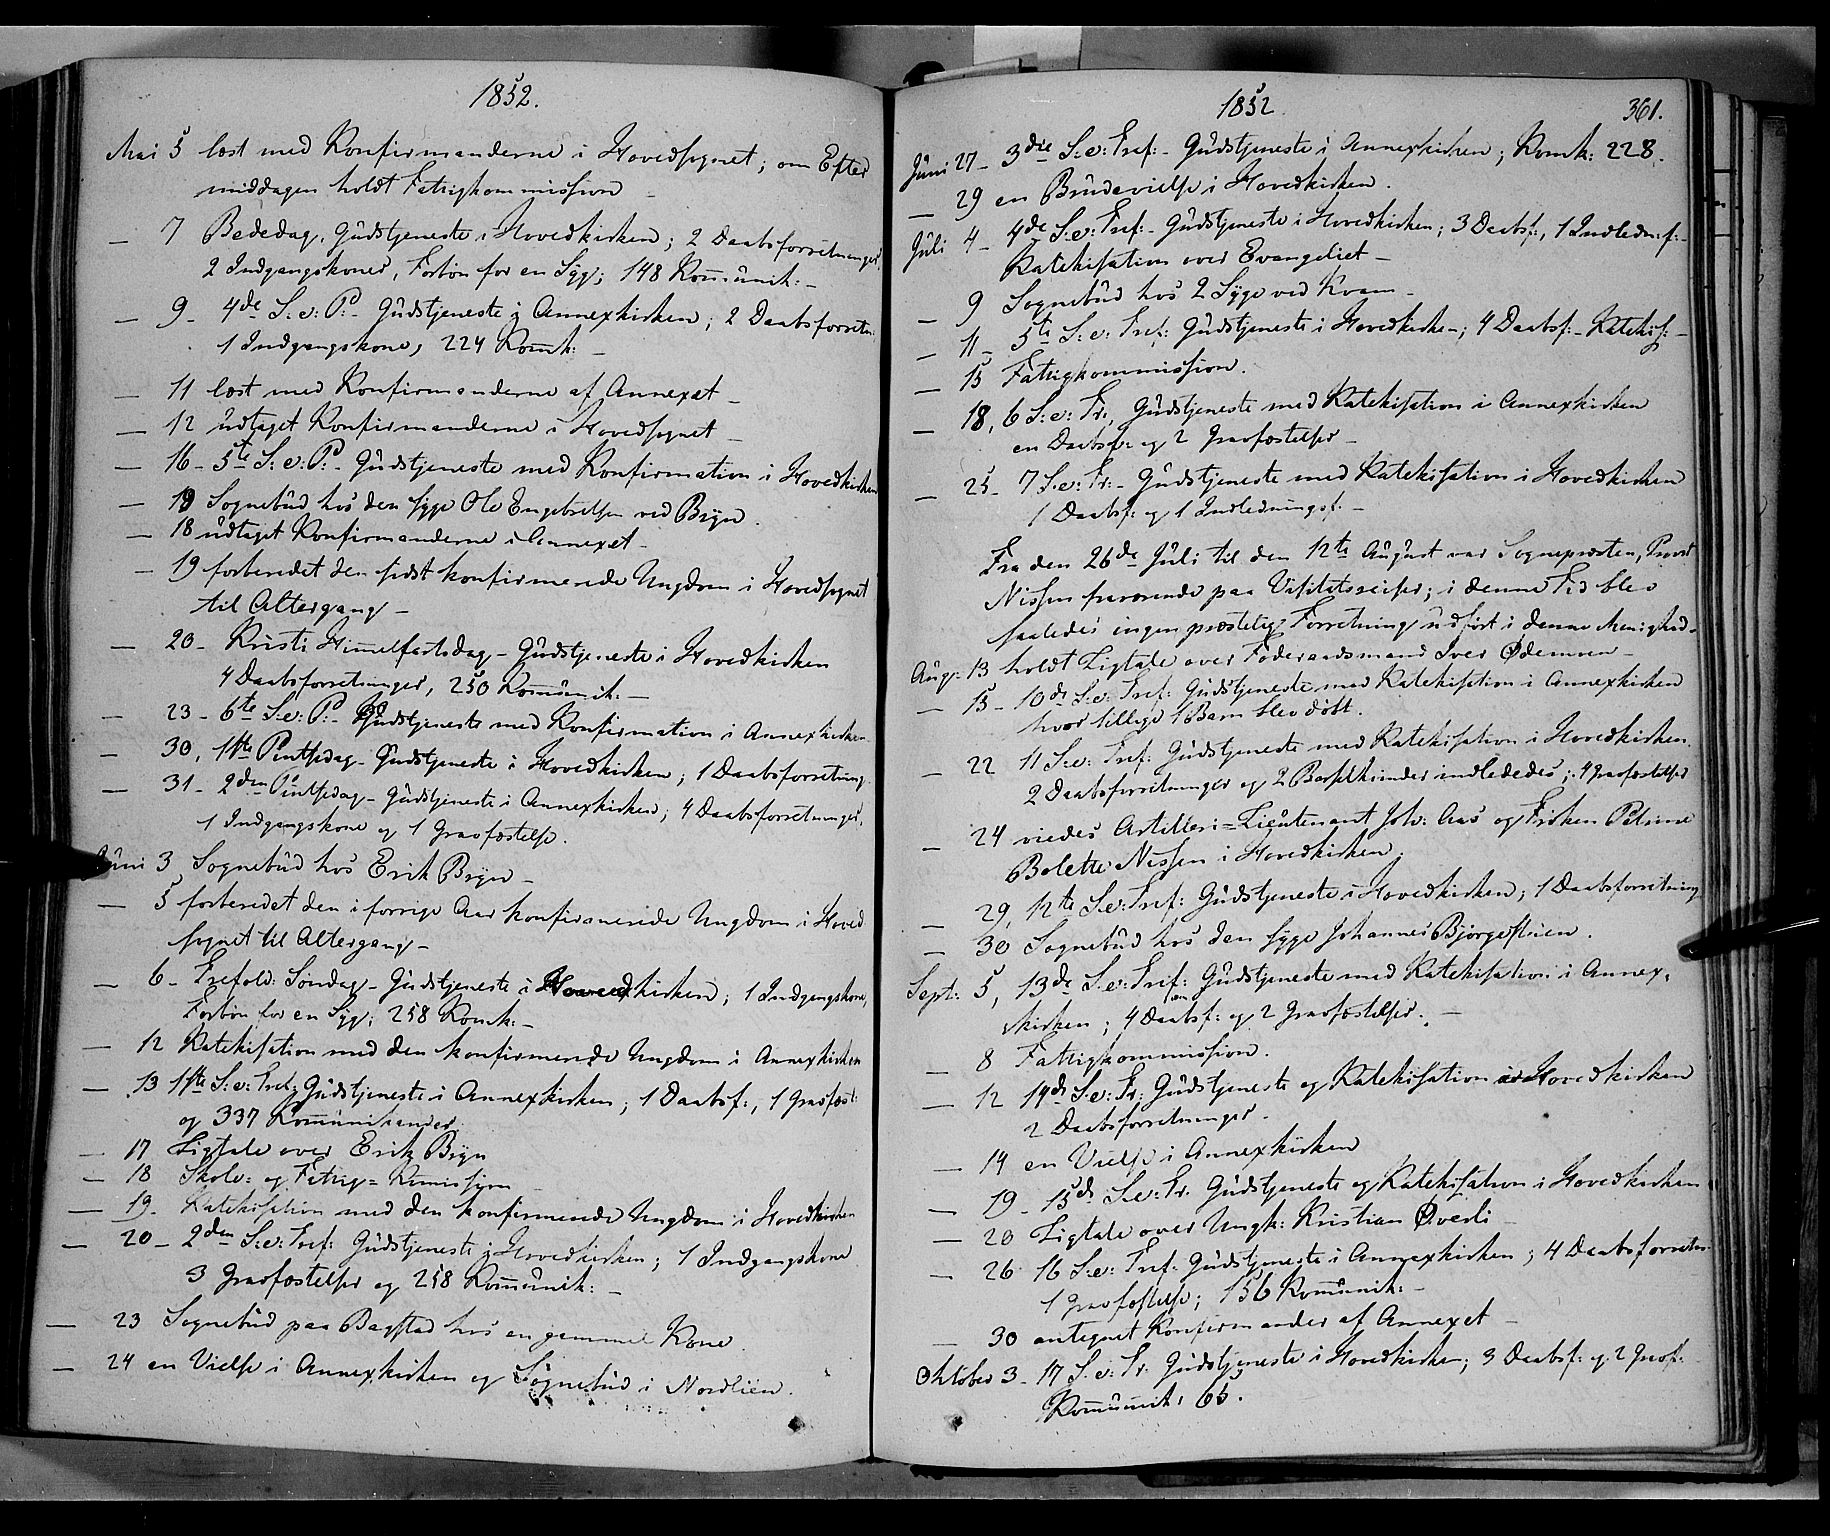 1852.
Mai 5 læst med Konfirmanderne i Hovedsognet; om Efter
middagen holdt Fattigkommission
— 7 Bededag, Gudstjeneste i Hovedkirken; 2 Daabsforretninger,
2 Indgangskoner, Forbøn for en Syg; 148 Kommunik: —
— 9 - 4de S: e: P: - Gudstjeneste i Annexkirken; 2 Daabsforretn:
1 Indgangskone, 224 Komk: —
— 11 læst med Konfirmanderne af Annexet —
— 12 udtaget Konfirmanderne i Hovedsognet —
— 16 - 5te S: e: P: - Gudstjeneste med Konfirmation i Hovedkirken
— Sognebud hos den syge Ole Engebretsen ved Bryn.
— 18 udtaget Konfirmanderne i Annexet —
— 19 forberedet den sidst konfirmerede Ungdom i Hovedsognet
til Altergang —
— 20 - Kristi Himmelfartsdag - Gudstjeneste i Hovedkirken
4 Daabsforretninger, 250 Kommunik: —
— 23 - 6te S: e: P: - Gudstjeneste med Konfirmation i Annexkirken
— 30, 1ste Pintsedag - Gudstjeneste i Hovedkirken; 1 Daabsforretning
— 31 - 2den Pintsedag - Gudstjeneste i Annexkirken; 4 Daabsforretninger,
1 Indgangskone og 1 Gravfæstelse.
Juni 3 Sognebud hos Erik Bryn —
— 5 forberedet den i forrige Aar konfirmerede Ungdom i Hoved
sognet til Altergang —
— 6 - Trefold: Søndag - Gudstjeneste i Hovedkirken; 1 Indgangskone,
Forbøn for en Syg; 258 Komk: —
— 12 Katekisation med den konfirmerede Ungdom i Annexkirken
— 13 1ste S: e: Tref: Gudstjeneste i Annexkirken; 1 Daabsf:, 1 Gravfæst:
og 337 Kommunikanter
— 17 Ligtale over Erik Bryn
— 18 Skole- og Fattig= Komission
— 19 - Katekisation med den konfirmerede Ungdom i Hovedkirken
— 20 - 2den S: e: Tref: Gudstjeneste i Hovedkirken; 1 Indgangskone
3 Gravfæstelser og 258 Kommunik: —
— 23 Sognebud paa Bagstad hos en gammel Kone.
— 24 en Vielse i Annexkirken og Sognebud i Nordlien.
1852
361.
Juni 27 - 3die S: e: Tref: - Gudstjeneste i Annexkirken; Komk: 228.
— 29 en Brudevielse i Hovedkirken.
Juli 4 - 4de S: e: Tref: - Gudstjeneste i Hovedkirken; 3 Daabsf:, 1 Indledn:f: -
Katekisation over Evangeliet —
— 9 Sognebud hos 2 Syge ved Kvam —
— 11 - 5te S: e: Tref: Gudstjeneste i Hovedkirke -; 4 Daabsf: - Katekis: —
— 15 Fattigkommission.
— 18, 6 S: e: Tr:, Gudstjeneste med Katekisation i Annexkirken
en Daabsf: og 2 Gravfæstelser —
— 25 - 7 S: e: Tr: - Gudstjeneste med Katekisation i Hovedkirken
1 Daabsf: og 1 Indledningsf. —
Fra den 26de Juli til den 12te August var Sognepræsten, Provst
Nissen fraværende paa Visitatsreiser; i denne Tid blev
saaledes ingen præstelig Forretning udført i denne Menighed.
Aug: 13 holdt Ligtale over Føderaadsmand Iver Ødemoen —
— 15 - 10de S: e: Tref: Gudstjeneste med Katekisation i Annexkirken
hvor tillige 1 Barn blev døbt.
— 22 11 S: e: Tref: Gudstjeneste med Katekisation i Hovedkirken.
2 Daabsforretninger og 2 Barselkvinder indlededes; 4 Gravfæstelser
— 24 viedes Artilleri=Lieutenant Joh: Aas og Frøken Petrine
Bolette Nissen i Hovedkirken.
— 29, 12te S: e: Tref: Gudstjeneste i Hovedkirken; 1 Daabsforretning
— 30 Sognebud hos den syge Johannes Bjørgestuen.
Sept: 5, 13de S: e: Tref: Gudstjeneste med Katekisation i Annex,
kirken; 4 Daabsf: og 2 Gravfæstelser. —
— 8 Fattigkommission.
— 12 14de S: e: Tr: Gudstjeneste og Katekisation i Hovedkirken
2 Daabsforretninger.
— 14 en Vielse i Annexkirken
— 19 - 15de S: e: Tr. Gudstjeneste og Katekisation i Hovedkirken
— 20 Ligtale over Ungk: Kristian Øverli
— 26 16 S: e: Tref: Gudstjeneste i Annexkirken; 4 Daabsforretn:
1 Gravfæstelse; 156 Kommunik: —
— 30 antegnet Konfirmander af Annexet —
Oktober 3 - 17 S: e: Tr: Gudstjeneste i Hovedkirken; 3 Daabsf: og 2 Gravf:
Kommunik: 65.